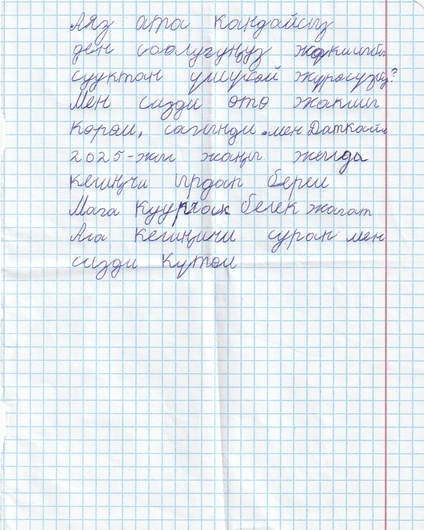 Аяз ата кандайсыз
ден соолугуңуз жакшыбы
сууктан үшүбөй жүрөсүзбү?
Мен сизди өтө жакшы
көрөм, сагынды. мен Даткайы
2025-жыл жаңы жылда
келиңчи ырдап берем
Мага куурчак белек жагат
Ага келиңичи суран мен
сизди күтөм